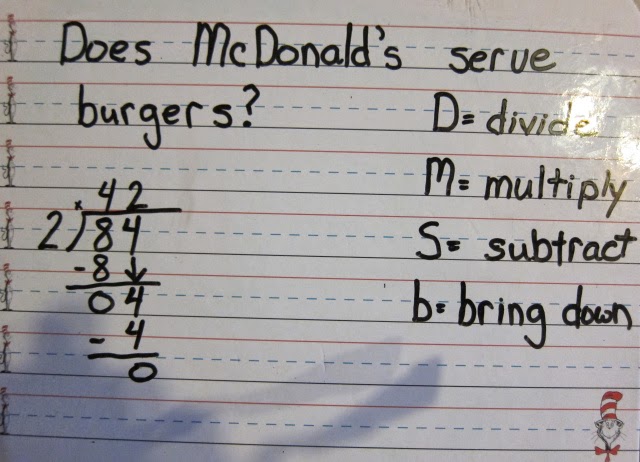 Does McDonald's serve
burgers?
D= divide
M= multiply
S= subtract
b= bring down
x 42
2)84
-8↓
04
-4
0